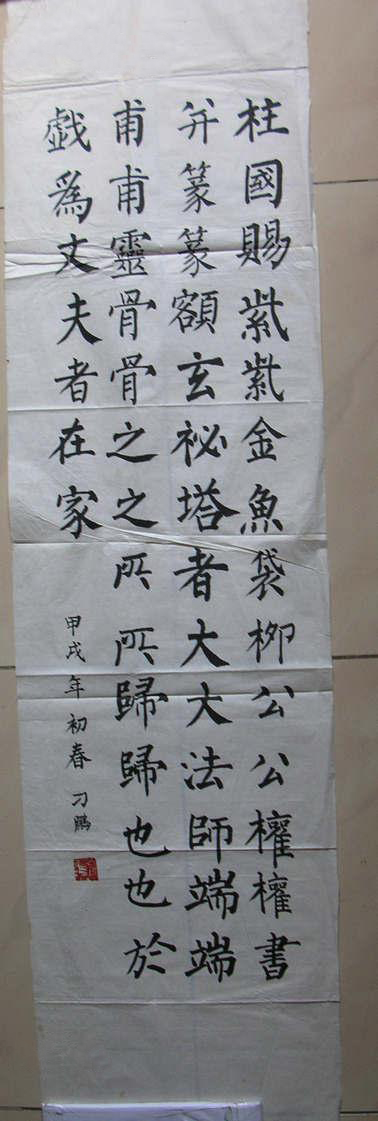 柱國賜紫紫金魚袋栁公公權權書
并篆篆額玄祕塔者大大法師端端
甫甫靈骨骨之之所所歸歸也也於
戯為丈夫者在家
甲戌年初春刁鵬